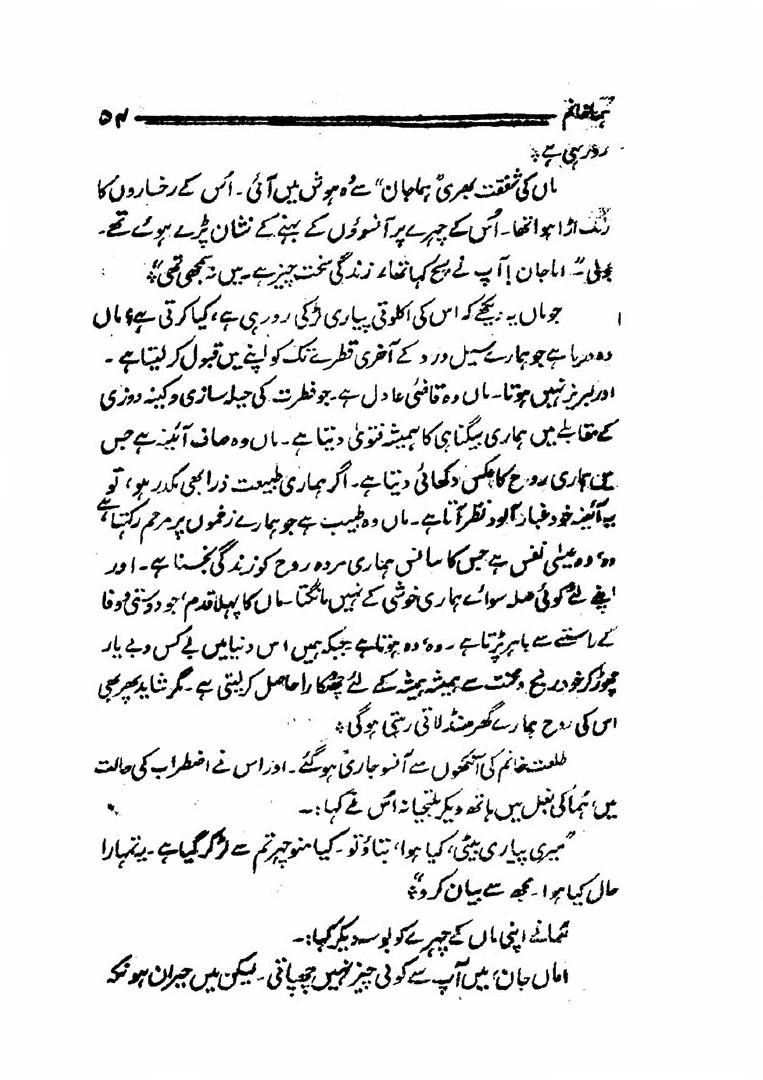 ہما خانم ۵۴
رو رہی ہے؞
ماں کی شفقت بھری "ہما جان" سے وُہ ہوش میں آئی۔ اُس کے رخساروں کا
رنگ اڑا ہوا تھا۔ اُس کے چہرے پر آنسوؤں کے بہنے کے نشان پڑے ہوئے تھے۔
بولی "اماجان! آپ نے سچ کہا تھا، زندگی سخت چیز ہے۔ میں نہ سمجھی تھی"؞
جو ماں یہ دیکھے کہ اس کی اکلوتی پیاری لڑکی رو رہی ہے، کیا کرتی ہے؟ ماں
وہ دریا ہے جو ہمارے سیل درد کے آخری قطرے تک کو اپنے میں قبول کر لیتا ہے۔
اور لبریز نہیں ہوتا۔ ماں وہ قاضئ عادل ہے۔ جو فطرت کی حیلہ سازی و کینہ دوزی
کے مقابلے میں ہماری بیگناہی کا ہمیشہ فتویٰ دیتا ہے۔ ماں وہ صاف آئینہ ہے جس
میں ہماری روح کا عکس دکھائی دیتا ہے۔ اگر ہماری طبیعت ذرا بھی مکدر ہو، تو
یہ آئینہ خود غبار آلود نظر آتا ہے۔ ماں وہ طبیب ہے جو ہمارے زخموں پر مرہم رکھتا ہے
وہ، وہ عیسٰی نفس ہے جس کا سانس ہماری مردہ روح کو زندگی بخشتا ہے۔ اور
اپنے لئے کوئی صلہ سوائے ہماری خوشی کے نہیں مانگتا۔ ماں کا پہلا قدم، جو دوستی و وفا
کے راستے سے باہر پڑتا ہے۔ وہ، وہ ہوتا ہے جبکہ ہمیں اس دنیا میں بے کس و بے یار
چھوڑ کر خود رنج و محنت سے ہمیشہ ہمیشہ کے لئے چھٹکارا حاصل کر لیتی ہے۔ مگر شاید پھر بھی
اس کی روح ہمارے گھر منڈلاتی رہتی ہوگی؞
طلعت خانم کی آنکھوں سے آنسو جاری ہو گئے۔ اور اس نے اضطراب کی حالت
میں، ہما کی بغل میں ہاتھ دیکر ملتجیانہ اُس سے کہا:۔
"میری پیاری بیٹی، کیا ہوا، بتاؤ تو۔ کیا منوچہر تم سے لڑ کر گیا ہے۔ یہ تمہارا
حال کیا ہوا۔ مجھ سے بیان کرو"؞
ہمانے اپنی ماں کے چہرے کو بوسہ دیکر کہا:۔
اماں جان، میں آپ سے کوئی چیز نہیں چھپاتی۔ لیکن میں حیران ہونکہ